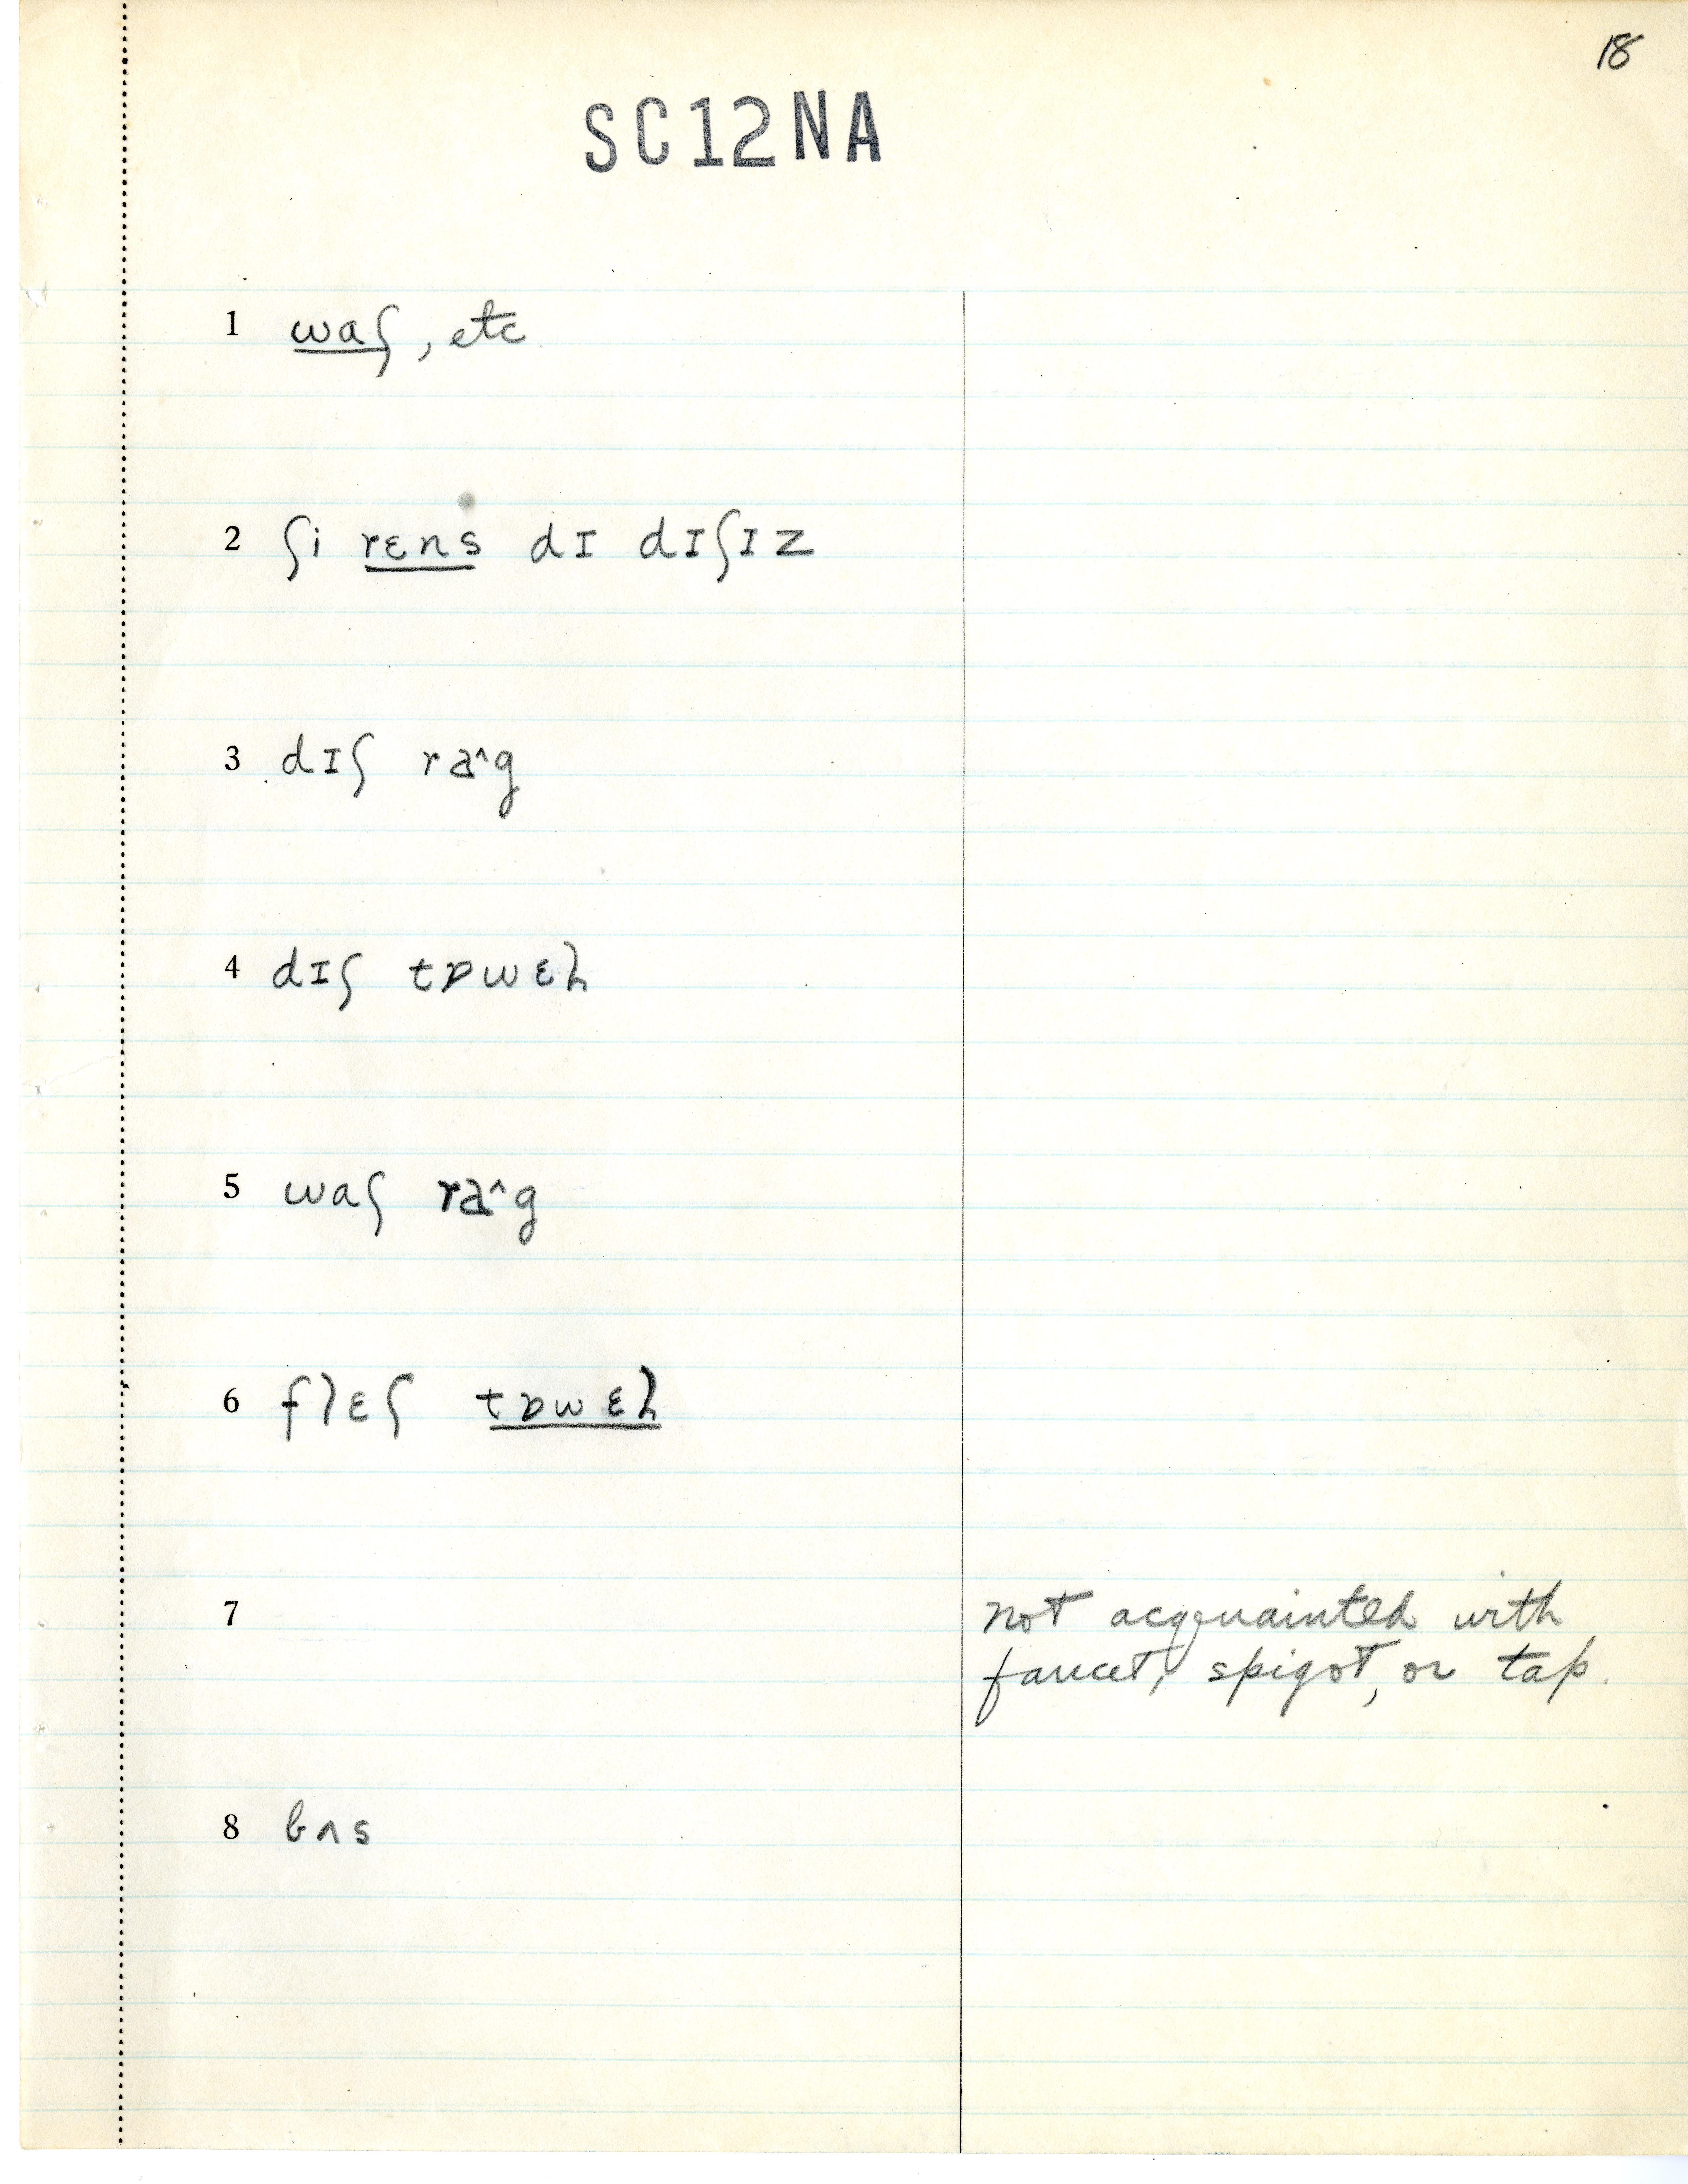 18
SC12NA
1 waʃ, etc
2 ʃi rɛns dɪ dɪʃɪz
3 dɪʃ ra^g
4 dɪʃ tɒwɛl
5 waʃ ra^g
6 flɛʃ tɒwɛl
7 not acquainted with
faucet, spigot, or tap.
8 bʌs